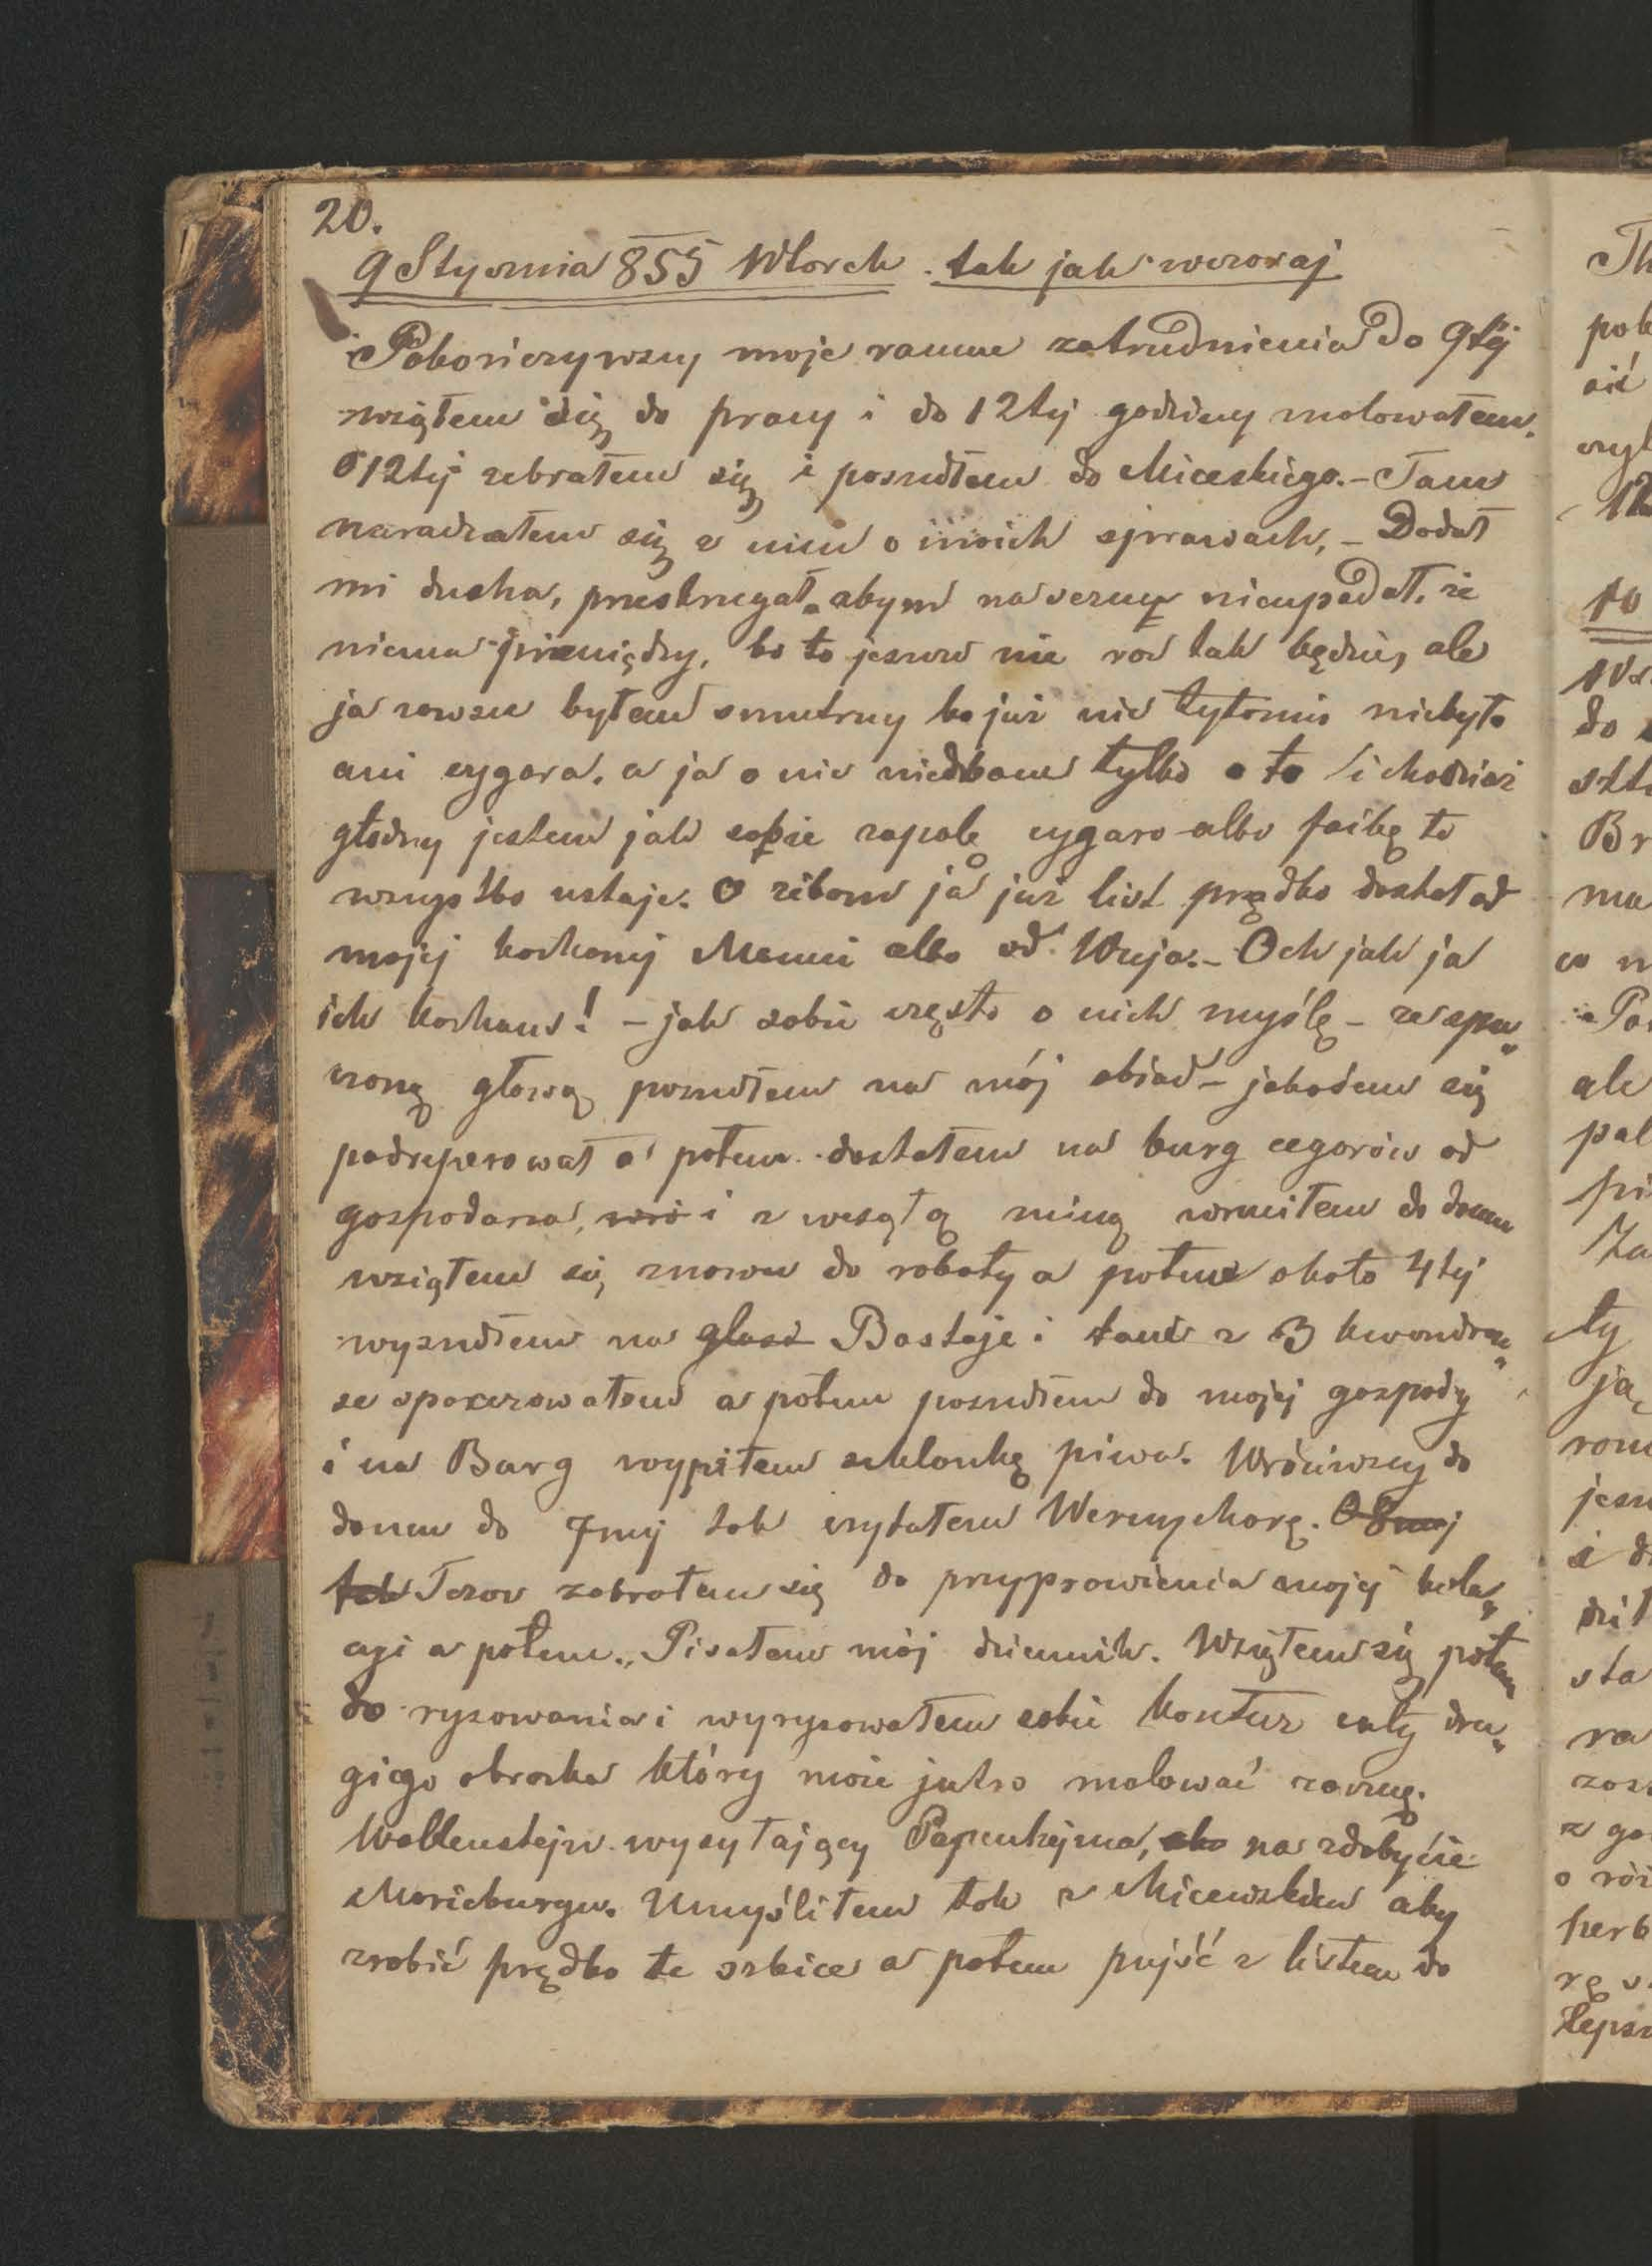 20.
9 Stycznia 855 Wtorek. tak jak wczoraj
Pokończywszy moje ranne zatrudnienia do 9tej
wziąłem się do pracy i do 12tej godziny malowałem.
O 12tej zebrałem się i poszedłem do Miceskiego. – Tam
naradzałem się z nim o moich sprawach, – Dodał
mi ducha, przestrzegał abym na sercu nieupadał, że
niema pieniędzy, bo to jeszcze nie raz tak będzie, ale
ja zawsze byłem smutny bo już nic tytoniu niebyło
ani cygara. a ja o nic niedbam tylko o to i chociaż
głodny jestem jak sobie zapalę cygaro albo fajkę to
wszystko ustaje. O żebym ja już list prędko dostał od
mojej kochanej Mamci albo od Wuja. – Och jak ja
ich kocham! – jak sobie często o nich myślę – ze spu„
czoną głową poszedłem na mój obiad – jakośem się
podreperował a potem dostałem na burg cegarów od
gospodarza, wró i z wesołą miną wróciłem do domu
wziąłem się znowu do roboty a potem około 4tej
wyszedłem na glasi Bastaje i tam z 3 kwandran„
se spacerowałem a potem poszedłem do mojej gospody
i na Burg wypiłem szklankę piwa. Wróciwszy do
domu do 7mej tak czytałem Wernyhorę. O 8mej
tak Teraz zabrałem się do przyprawienia mojej kola„
cyi a potem„ Pisałem mój dziennik. Wziąłem się potem
do rysowania i wyrysowałem sobie kontur cały dru„
giego obrazka który może jutro malować zacznę.
Wallenstejn wysyłający Papenhejma, aby na zdobycie
Moricburgu. Umyśliłem tak z Micewskim aby
zrobić prędko te szkice a potem pujść z listem do